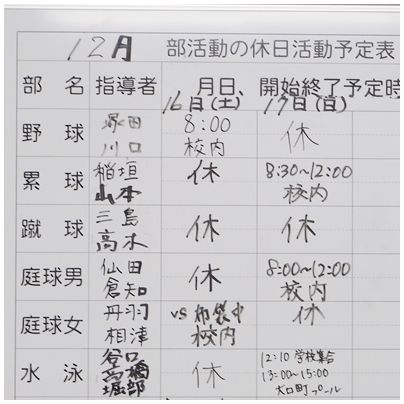 12月 部活動の休日活動予定表
部 名 指導者 月日、開始終了予定時
16日(土) 17日(日)
野 球 塚田 8:00 休
川口 校内
累 球 稲垣 休 8:30~12:00
山本 校内
蹴 球 三島 休 休
高木
庭球男 仙田 休 8:00~12:00
倉知 校内
庭球女 丹羽 vs 布袋中 休
相津 校内
水 泳 谷口 休 12:10 学校集合
高橋 13:00~15:00
堀部 大口町プール